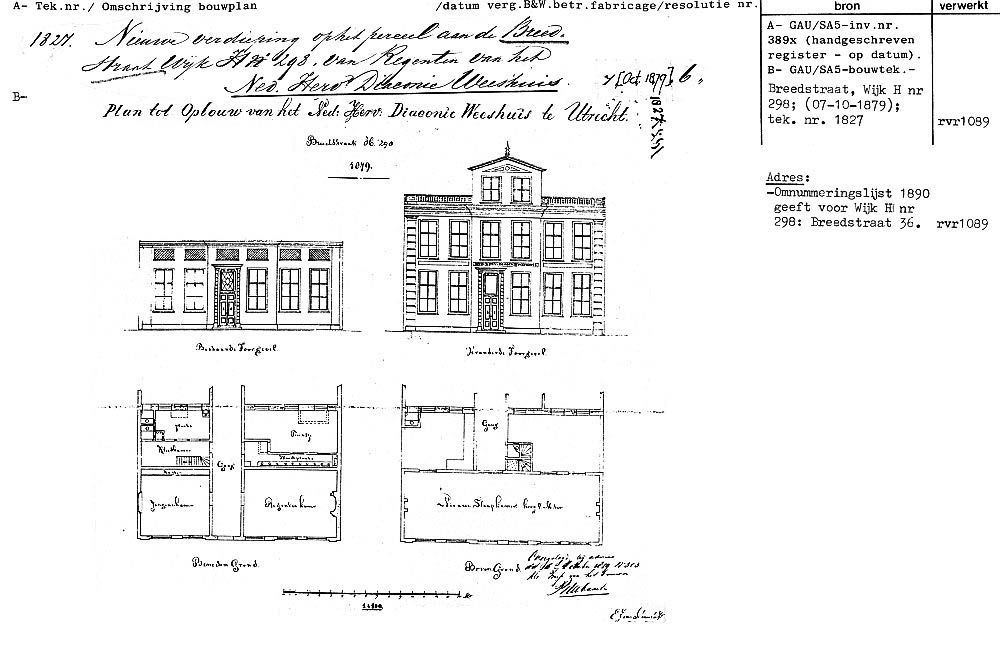 A- Tek.nr./ Omschrijving bouwplan
/datum verg.B&W.betr.fabricage/resolutie nr.
bron
verwerkt
1827. Nieuwe verdieping op het perceel aan de Breed-
straat Wijk H No 298. van Regenten van het
Ned. Herv. Diaconie Weeshuis.
7 [Oct 1879] 6
B-
Plan tot Opbouw van het Ned: Herv: Diaconie Weeshuis te Utrecht.
1827
Breedstraat H.
1879.
A- GAU/SA5-inv.nr.
389x (handgeschreven
register - op datum).
B- GAU/SA5-bouwtek.-
Breedstraat, Wijk H nr
298; (07-10-1879);
tek. nr. 1827
rvr1089
Adres:
-Omnummeringslijst 1890
geeft voor Wijk H nr
298: Breedstraat 36.
rvr1089
Bestaande Voorgevel.
Veranderde Voorgevel.
Gang
Gang
Regentenkamer
Nieuwe Slaapkamer
Beneden Grond.
Boven Grond.
1 à 100